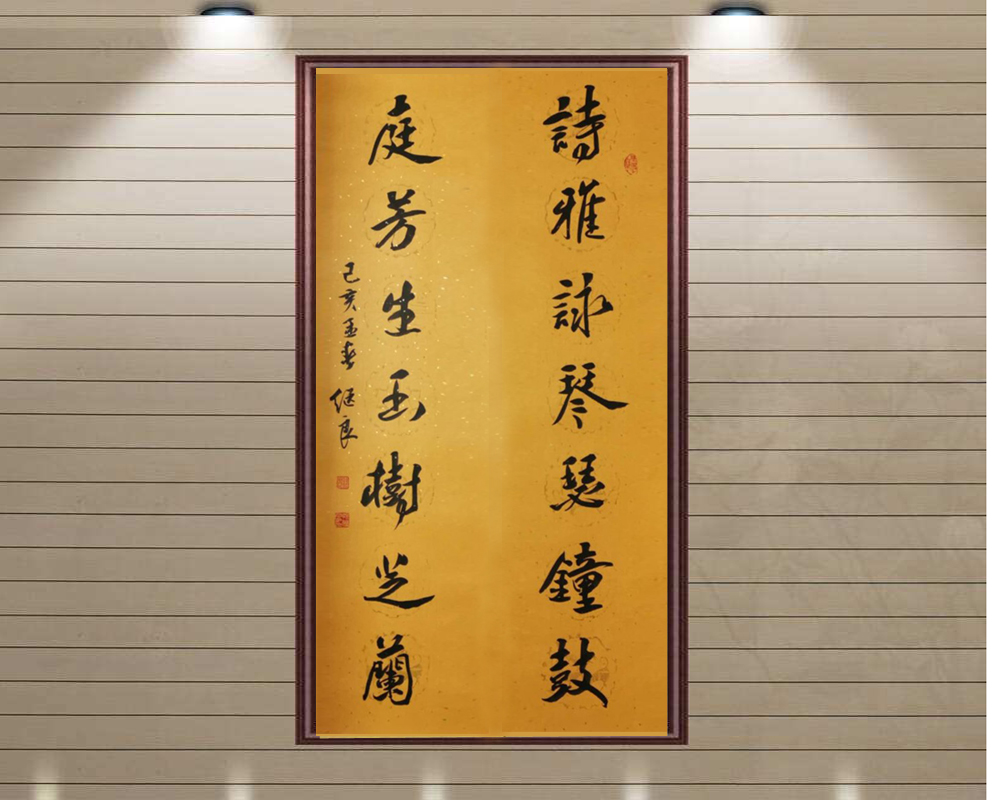 詩雅詠琴瑟鐘鼓
庭芳生玉樹芝蘭
己亥孟春 继良